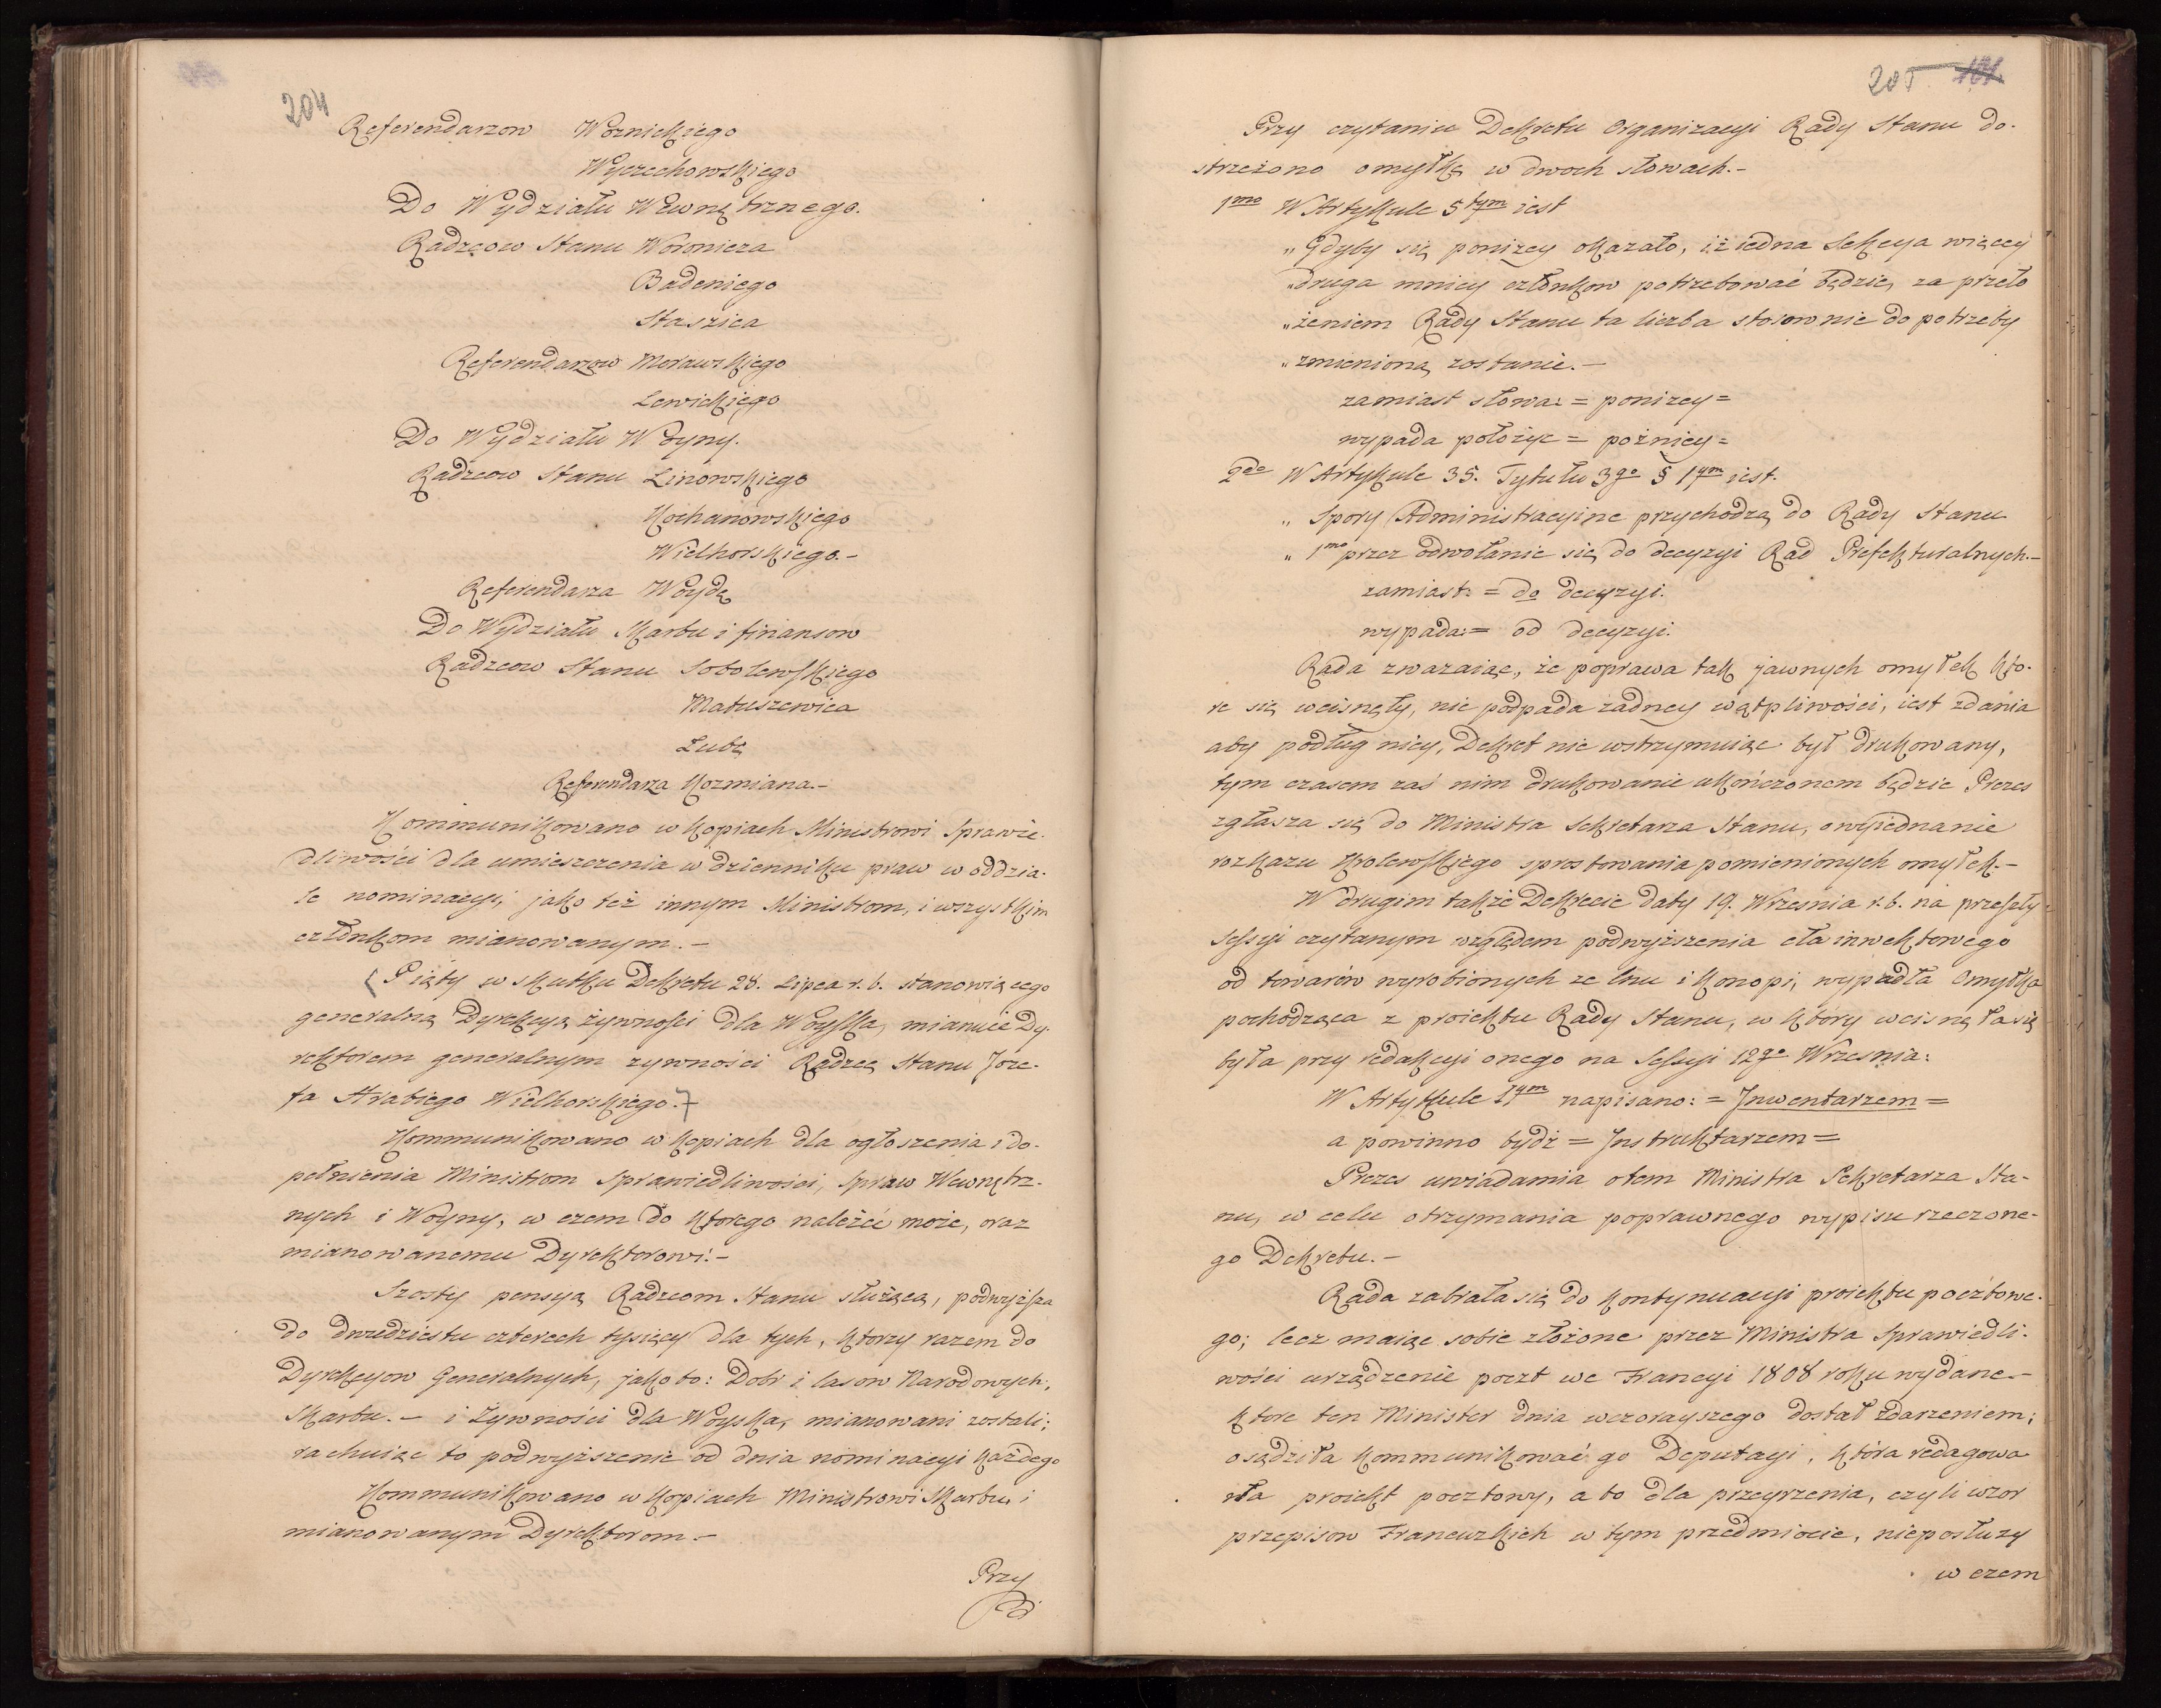 204
Referendarzow Woznickiego
Wyczechowskiego
Do Wydziału Wewnętrznego.
Radzcow Stanu Woronicza
Badeniego
Staszica
Referendarzow Morawskiego
Lewickiego
Do Wydziału Woyny.
Radzcow Stanu Linowskiego
Kochanowskiego
Wielhorskiego.-
Referendarza Woydę
Do Wydziału Skarbu i finansow
Radzcow Stanu Sobolewskiego
Matuszewica
Lubę
Referendarza Kozmiana.-
Kommunikowano w kopiach Ministrowi Sprawie-
dliwości dla umieszczenia w dzienniku praw w oddzia-
le nominacyi, jako też innym Ministrom, i wszystkim
członkom mianowanym.-
Piąty w skutku Dekretu 28. Lipca r. b. stanowiącego
generalną Dyrekcyą żywności dla Woyska, mianuie Dy-
rektorem generalnym zywności Radzcę Stanu Joze-
fa Hrabiego Wielhorskiego.
Kommunikowano w kopiach dla ogłoszenia i do-
pełnienia Ministrom Sprawiedliwości, Spraw Wewnętrz-
nych i Woyny, w czem do ktorego należeć może, oraz
mianowanemu Dyrektorowi.-
Szosty pensyą Radzcom Stanu służącą, podwyższa
do dwudziestu czterech tysięcy dla tych, ktorzy razem do
Dyrekcyow Generalnych, jako to: Dobr i lasow Narodowych,
Skarbu.- i Żywności dla Woyska, mianowani zostali;
rachuiąc to podwyższenie od dnia nominacyi każdego
Kommunikowano w kopiach Ministrowi Skarbu i
mianowanym Dyrektorom.-
Przy
205 101.
Przy czytaniu Dekretu Organizacyi Rady Stanu do-
strzeżono omyłkę w dwoch słowach.-
1mo W Artykule 5tym iest
„Gdyby się poniżey okazało, iż iedna Sekcya więcey
„druga mniey członkow potrzebować będzie, za przeło
„żeniem Rady Stanu ta liczba stosownie do potrzeby
„zmienioną zostanie.-
zamiast słowa: = poniżey =
wypada położyc = pożniey =
2do W Artykule 35. Tytułu 3go § 1ym iest.
„Spory Administracyine przychodzą do Rady Stanu
„1mo przez odwołanie się do decyzyi Rad Prefekturalnych.-
zamiast: = do decyzyi.
wypada: = od decyzyi.
Rada zwazaiąc, że poprawa tak jawnych omyłek kto-
re się wcisnęły, nie podpada żadney wątpliwości, iest zdania
aby podług niey, Dekret nie wstrzymuiąc był drukowany,
tym czasem zaś nim drukowanie ukończonem będzie Prezes
zgłasza się do Ministra Sekretarza Stanu, o wyiednanie
rozkazu Krolewskiego sprostowania pomienionych omyłek.-
W drugim także Dekrecie daty 19. Wrzesnia r. b. na przeszły
Sessyi czytanym względem podwyższenia cła inwektowego
od towarów wyrobionych ze lnu i konopi, wypadła Omyłka
pochodząca z proiektu Rady Stanu, w ktory wcisnęła się
była przy redakcyi onego na Sessyi 12go Wrzesnia:
W Artykule 1ym napisano: = Inwentarzem =
a powinno bydź = Instruktarzem =
Prezes uwiadamia o tem Ministra Sekretarza Sta-
nu, w celu otrzymania poprawnego wypisu rzeczone-
go Dekretu.-
Rada zabrała się do kontynuacyi proiektu pocztowe-
go; lecz maiąc sobie złożone przez Ministra Sprawiedli-
wości urządzenie poczt we Francyi 1808 roku wydane.-
ktore ten Minister dnia wczorayszego dostał zdarzeniem;
osądziła kommunikować go Deputacyi, która redagowa
ła proiekt pocztowy, a to dla przeyrzenia, czyli wzor
przepisow Francuzkich w tym przedmiocie, nieposłuzy
w czem